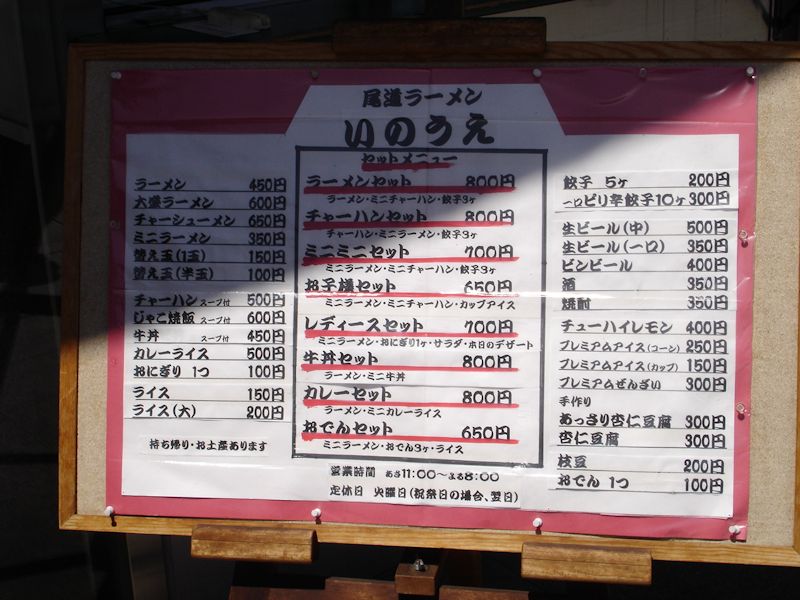 尾道ラーメン
いのうえ
ラーメン 450円
大盛ラーメン 600円
チャーシューメン 650円
ミニラーメン 350円
替え玉(1玉) 150円
替え玉(半玉) 100円
チャーハン スープ付 500円
じゃこ焼飯 スープ付 600円
牛丼 スープ付 450円
カレーライス 500円
おにぎり 1つ 100円
ライス 150円
ライス(大) 200円
持ち帰り・お土産あります
セットメニュー
ラーメンセット 800円
ラーメン・ミニチャーハン・餃子3ヶ
チャーハンセット 800円
チャーハン・ミニラーメン・餃子3ヶ
ミニミニセット 700円
ミニラーメン・ミニチャーハン・餃子3ヶ
お子様セット 650円
ミニラーメン・ミニチャーハン・カップアイス
レディースセット 700円
ミニラーメン・おにぎり1ヶ・サラダ・本日のデザート
牛丼セット 800円
ラーメン・ミニ牛丼
カレーセット 800円
ラーメン・ミニカレーライス
おでんセット 650円
ミニラーメン・おでん3ヶ・ライス
営業時間 あさ11:00〜よる8:00
定休日 火曜日(祝祭日の場合、翌日)
餃子 5ヶ 200円
一口ピリ辛餃子10ヶ 300円
生ビール(中) 500円
生ビール(一口) 350円
ビンビール 400円
酒 350円
焼酎 350円
チューハイレモン 400円
プレミアムアイス(コーン) 250円
プレミアムアイス(カップ) 150円
プレミアムぜんざい 300円
手作り
あっさり杏仁豆腐 300円
杏仁豆腐 300円
枝豆 200円
おでん 1つ 100円